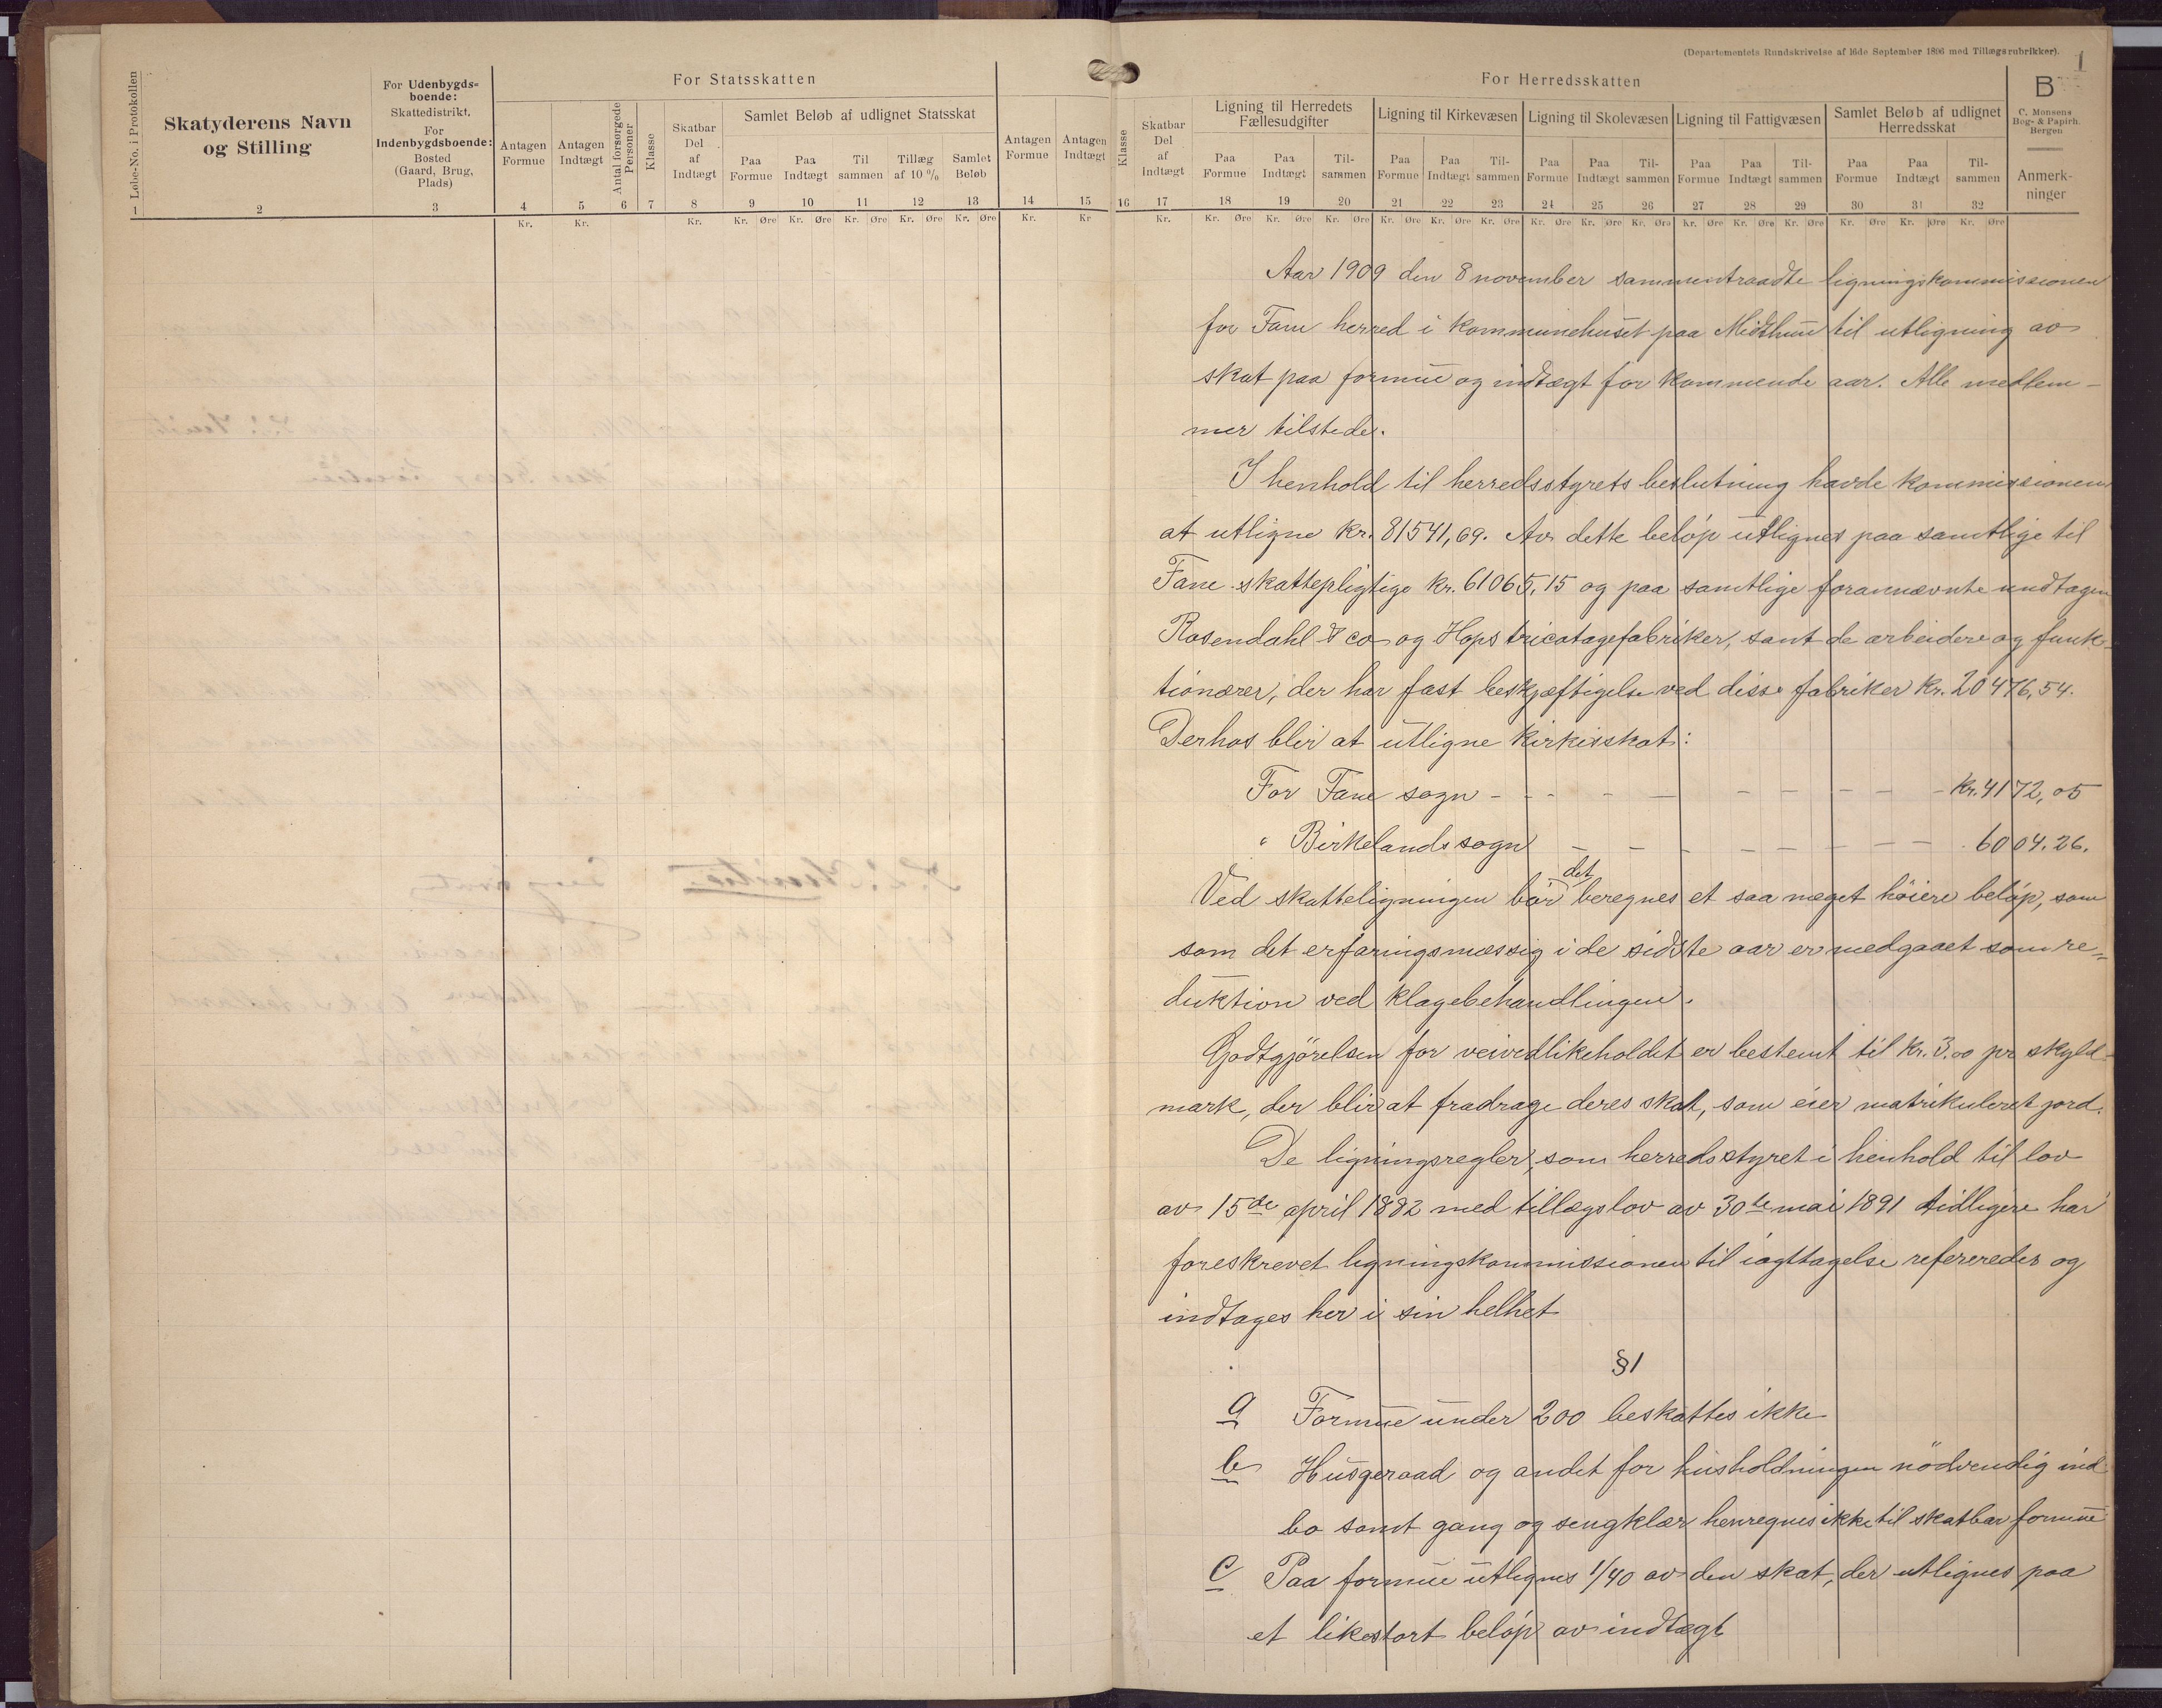 (Departementets Rundskrivelse af 16de September 1896 med Tillægsrubrikker).
1
Løbe-No. i Protokollen
Skatyderens Navn
og Stilling
For Udenbygds-
boende:
Skattedistrikt.
For
Indenbygdsboende:
Bosted
(Gaard, Brug,
Plads)
For Statsskatten
Antagen
Formue
Antagen
Indtægt
Antal forsørgede
Personer
Klasse
Skatbar
Del
af
Indtægt
Samlet Beløb af udlignet Statsskat
Paa
Formue
Paa
Indtægt
Til
sammen
Tillæg
af 10 %
Samlet
Beløb
Antagen
Formue
Antagen
Indtægt
1 2 3 4 5 6 7 8 9 10 11 12 13 14 15
Kr. Kr. Kr. Kr. Øre Kr. Øre Kr. Øre Kr. Øre Kr. Øre Kr. Kr
For Herredsskatten
Klasse
Skatbar
Del
af
Indtægt
Ligning til Herredets
Fællesudgifter
Ligning til Kirkevæsen
Ligning til Skolevæsen
Ligning til Fattigvæsen
Samlet Beløb af udlignet
Herredsskat
B
C. Monsens
Bog- & Papirh.
Bergen
Anmerk-
ninger
Paa Formue Paa Indtægt Til- sammen Paa Formue Paa Indtægt Til- sammen Paa Formue Paa Indtægt Til- sammen Paa Formue Paa Indtægt Til- sammen Paa Formue Paa Indtægt Til- sammen
16 17 18 19 20 21 22 23 24 25 26 27 28 29 30 31 32
Kr. Kr. Øre Kr. Øre Kr. Øre Kr. Øre Kr. Øre Kr. Øre Kr. Øre Kr. Øre Kr. Øre Kr. Øre Kr. Øre Kr. Øre Kr. Øre Kr. Øre Kr. Øre
Aar 1909 den 8 november sammentraadte ligningskommissionen
for Fane herred i kommunehuset paa Midthun til utligning av
skat paa formue og indtægt for kommende aar. Alle medlem-
mer tilstede.
I henhold til herredsstyrets beslutning havde kommissionen
at utligne kr. 81541,69. Av dette beløp utlignes paa samtlige til
Fane skattepligtige kr. 61065,15 og paa samtlige forannævnte undtagen
Rosendahl & co og Hops tricotagefabriker, samt de arbeidere og funk-
tionærer, der har fast beskjæftigelse ved disse fabriker kr. 20476,54.
Derhos blir at utligne kirkeskat:
For Fane sogn - - - - - - - - - - kr. 4172,05
" Birkelands sogn - - - - - - - - - 6004.26.
Ved skatteligningen bør det beregnes et saa meget høiere beløp, som
som det erfaringsmæssig i de sidste aar er medgaaet som re-
duktion ved klagebehandlingen.
Godtgjørelsen for veivedlikeholdet er bestemt til kr. 3.00 pr skyld-
mark, der blir at fradrage deres skat, som eier matrikuleret jord.
De ligningsregler, som herredsstyret i henhold til lov
av 15de april 1882 med tillægslov av 30te mai 1891 tidligere har
foreskrevet ligningskommissionen til iagttagelse refereredes og
indtages her i sin helhet
§1
a Formue under 200 beskattes ikke
b Husgeraad og andet for husholdningen nødvendig ind
bo samt gang og sengklær henregnes ikke til skatbar formue
c Paa formue utlignes 1/40 av den skat, der utlignes paa
et likestort beløp av indtægt